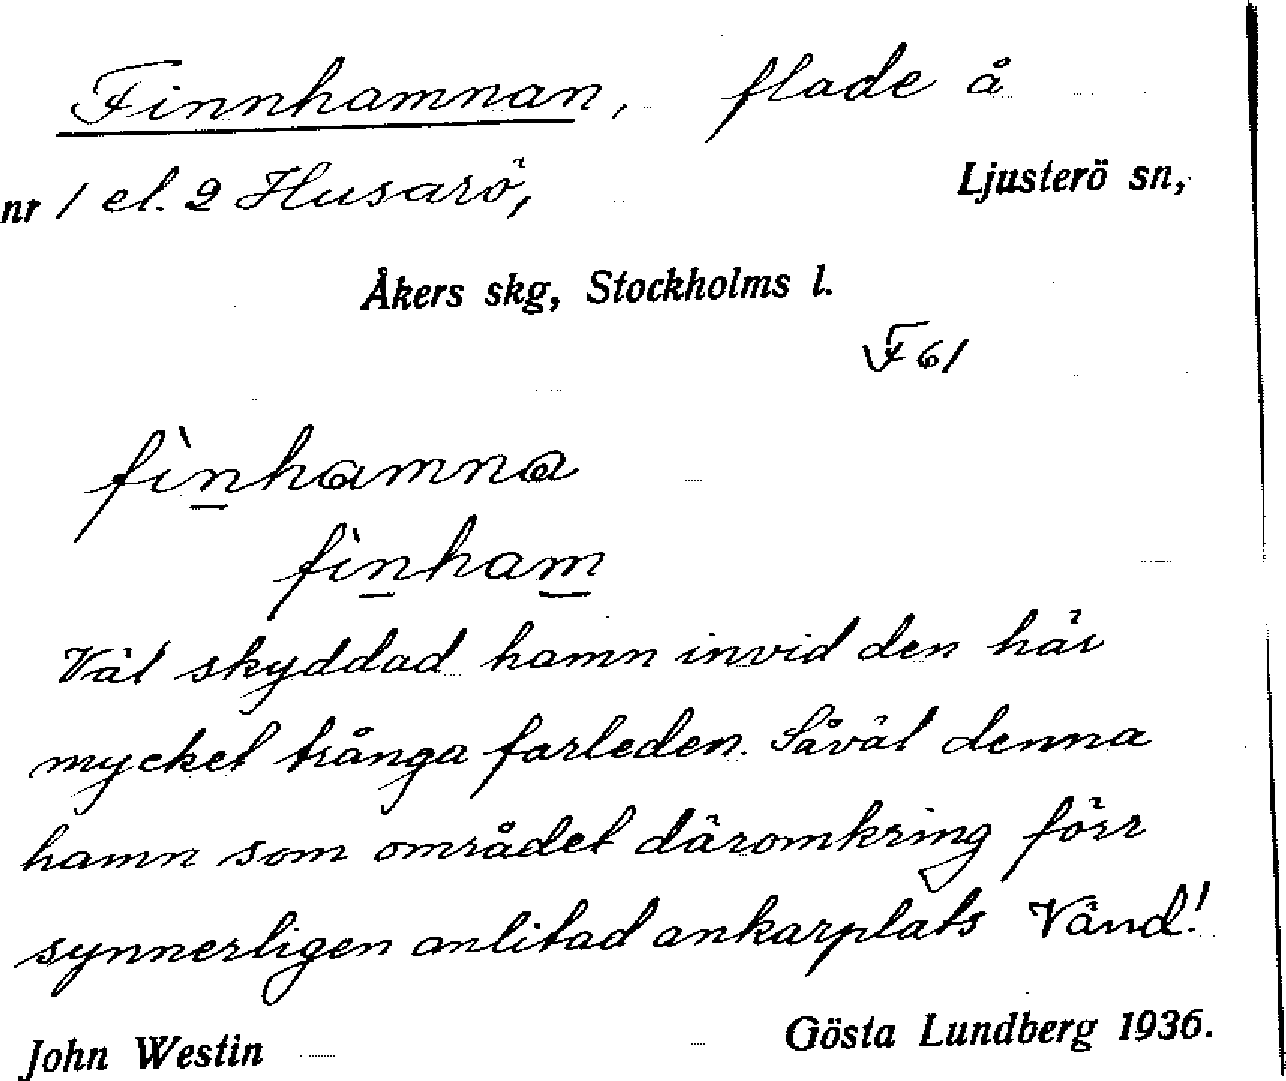 Finnhamnan, flade å
nr 1 el. 2 Husarö, Ljusterö sn,
Åkers skg, Stockholms l.
F 61
fìnhamna
fìnham
Väl skyddad hamn invid den här
mycket trånga farleden. Såväl denna
hamn som området däromkring förr
synnerligen anlitad ankarplats Vänd!
John Westin Gösta Lundberg 1936.